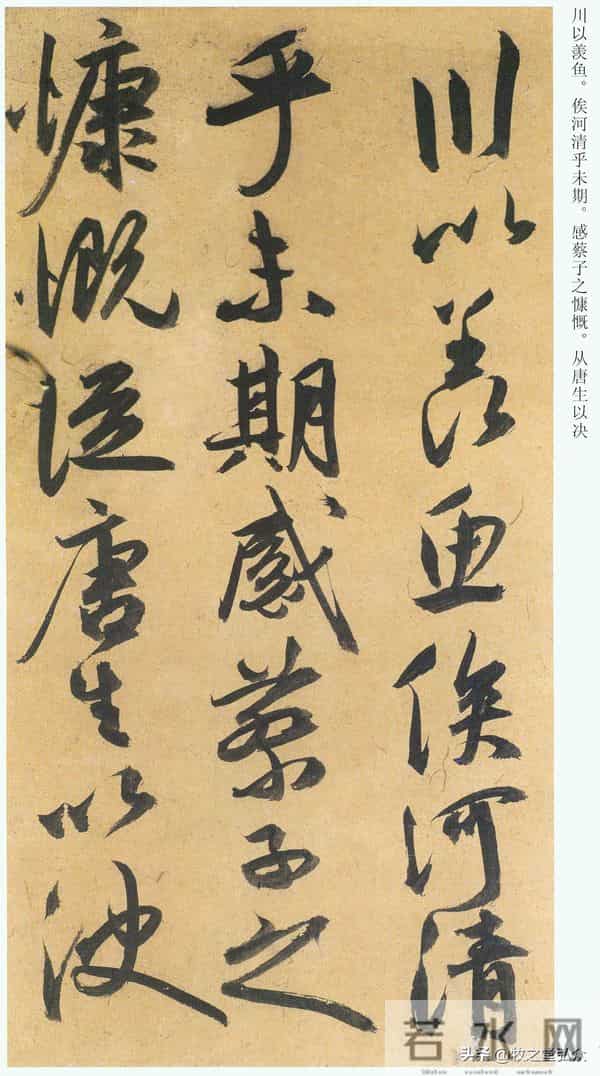 川以羡鱼。俟河清乎未期。感蔡子之慷慨。从唐生以决
川以羨魚俟河清
乎未期感蔡子之
慷慨從唐生以決
若水网
头条 @牧之堂弘